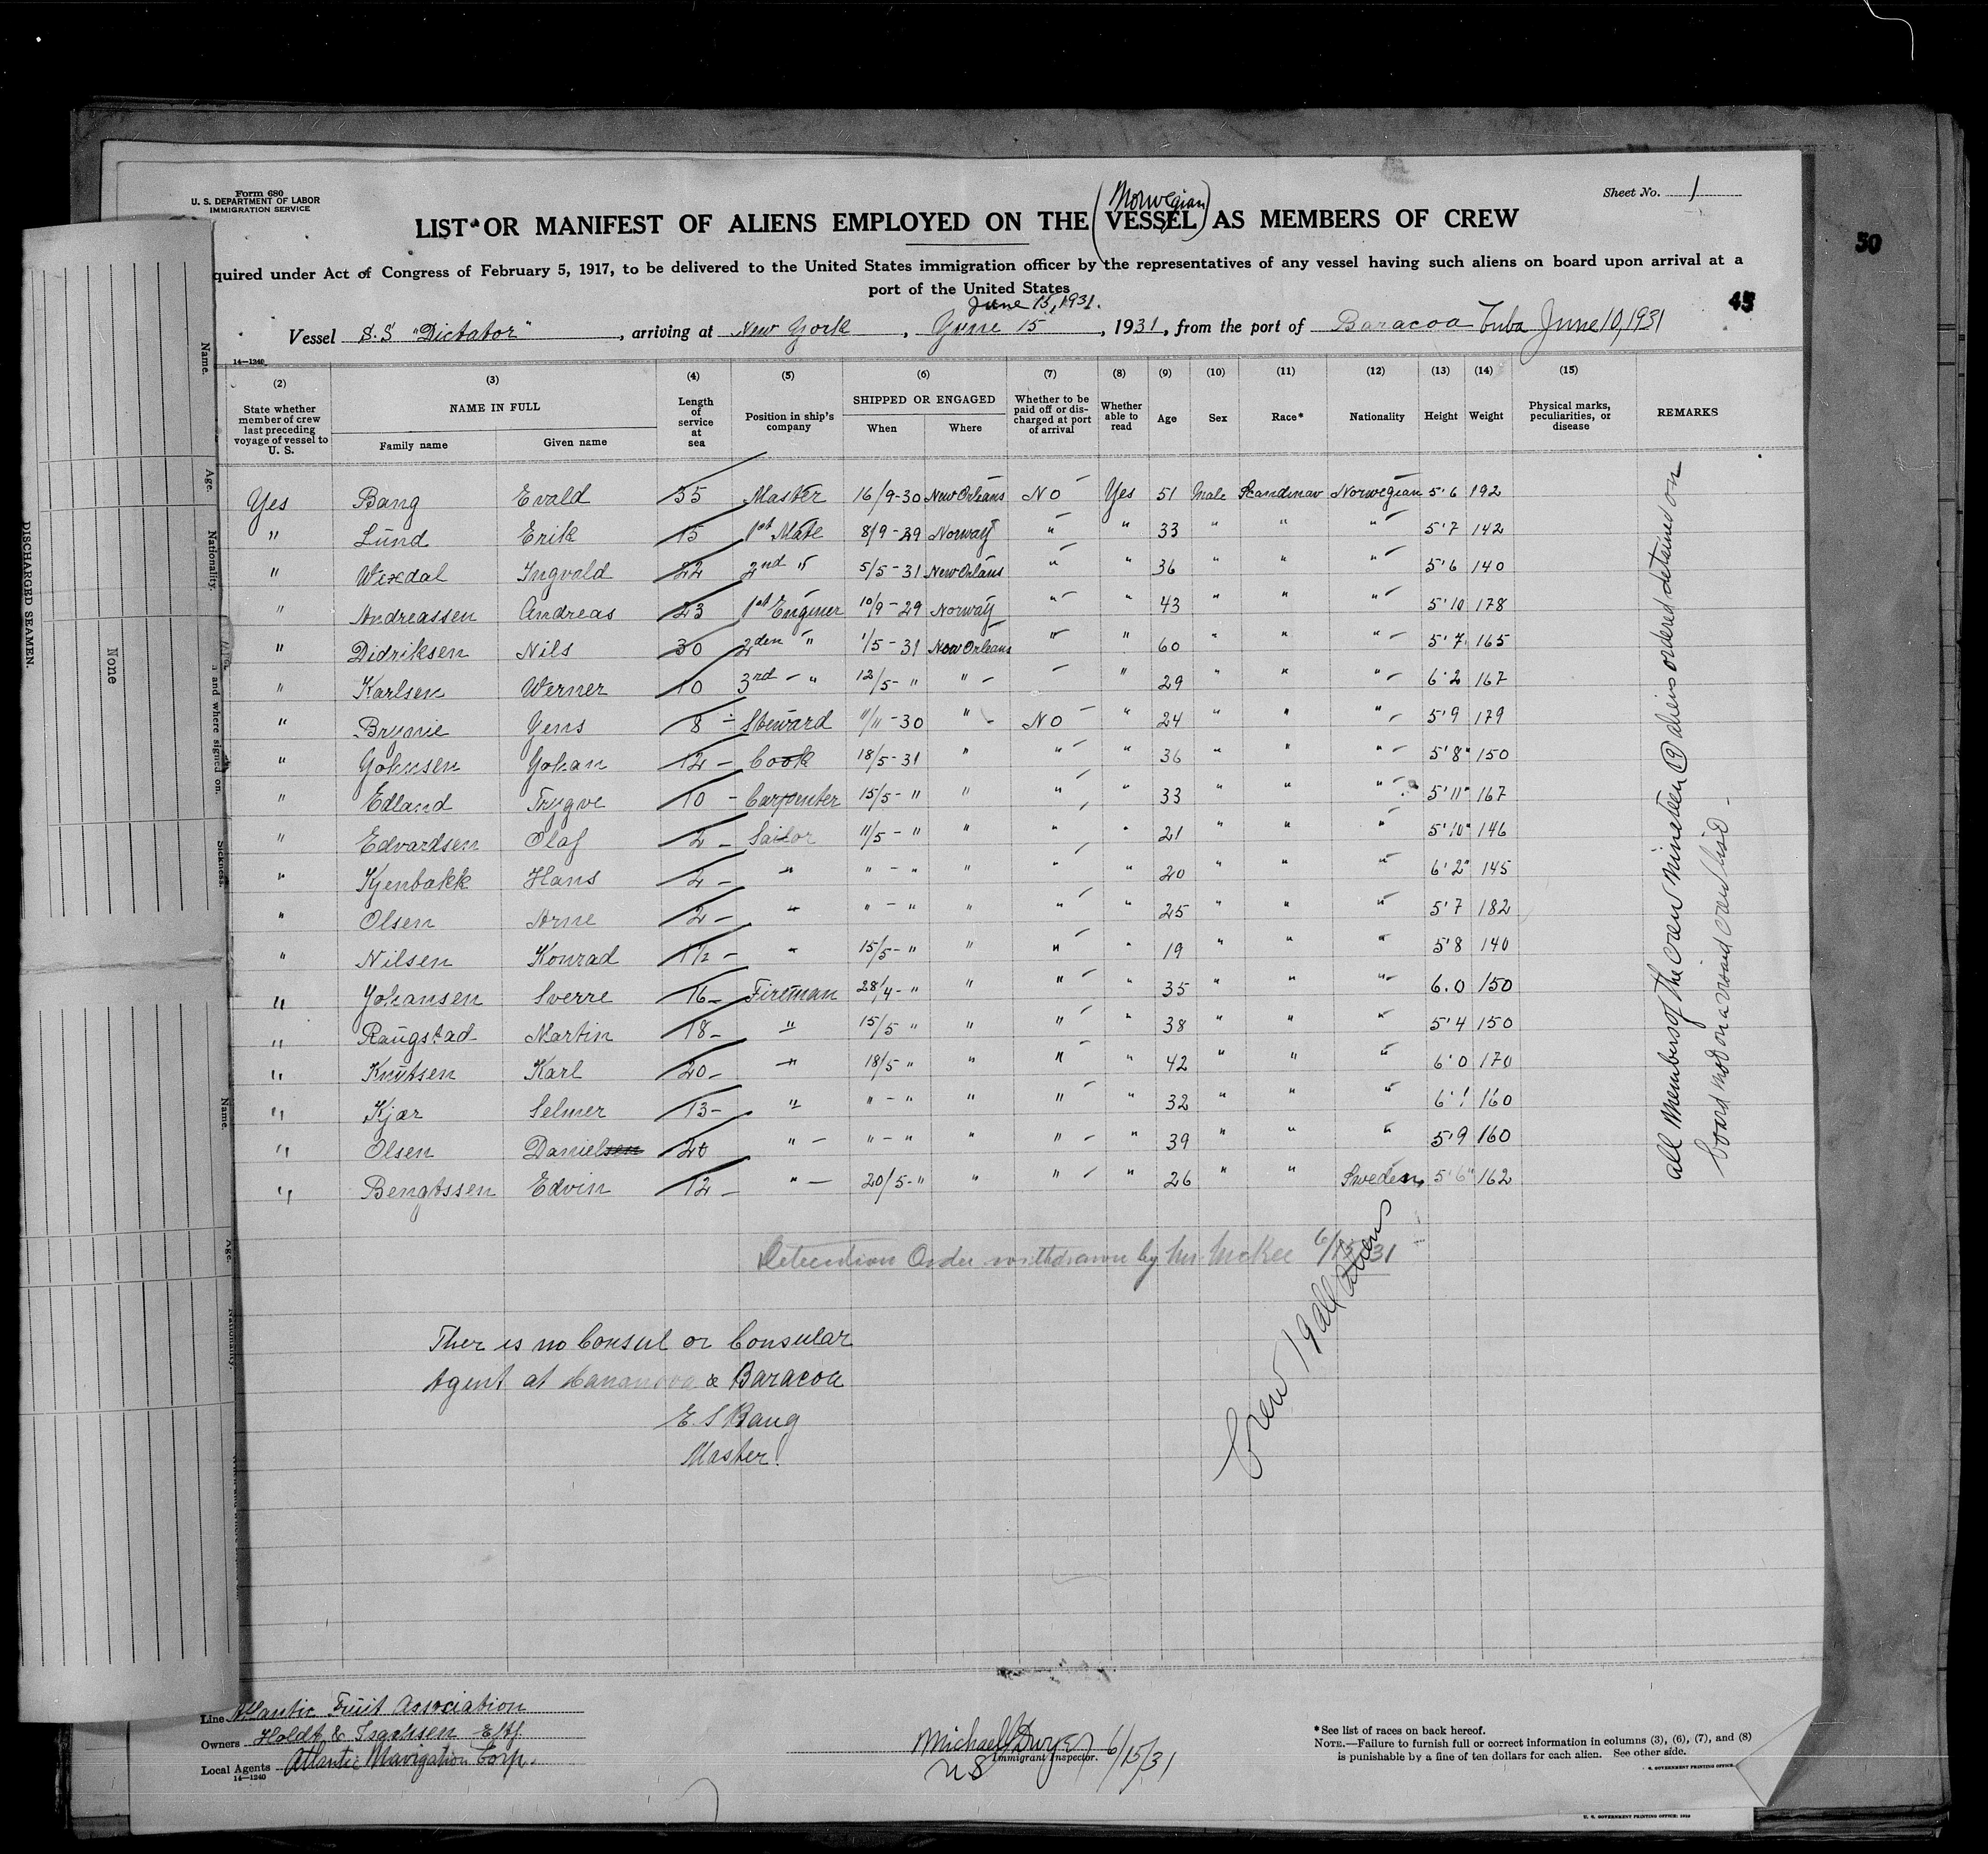 Form 680
U. S. DEPARTMENT OF LABOR
IMMIGRATION SERVICE
Sheet No. 1
(Norwegian)
LIST OR MANIFEST OF ALIENS EMPLOYED ON THE VESSEL AS MEMBERS OF CREW
quired under Act of Congress of February 5, 1917, to be delivered to the United States immigration officer by the representatives of any vessel having such aliens on board upon arrival at a
port of the United States
June 15, 1931.
Vessel S.S "Dictator", arriving at New York, June 15, 1931, from the port of Baracoa Cuba June 10, 1931
50
45
14—1240
(2) (3) (4) (5) (6) (7) (8) (9) (10) (11) (12) (13) (14) (15)
State whether member of crew last preceding voyage of vessel to U. S. NAME IN FULL Family name Given name Length of service at sea Position in ship's company SHIPPED OR ENGAGED When Where Whether to be paid off or discharged at port of arrival Whether able to read Age Sex Race* Nationality Height Weight Physical marks, peculiarities, or disease REMARKS
Yes Bang Evald 35 Master 16/9-30 New Orleans No Yes 51 Male Skandinav Norwegian 5'6 192
" Lund Erik 15 1st Mate 8/9-29 Norway " " 33 " " " 5'7 142
" Wexdal Ingvald 22 2nd " 5/5-31 New Orlans " " 36 " " " 5'6 140
" Andreassen Andreas 23 1st Enginer 10/9-29 Norway " " 43 " " " 5'10 178
" Didriksen Nils 30 2den " 1/5-31 New Orleans " " 60 " " " 5'7 165
" Karlsen Werner 10 3rd - " 12/5- " " " 29 " " " 6'2 167
" Brynie Yens 8 - Steward 11/11-30 " No " 24 " " " 5'9 179
" Yohnsen Yohan 12 - Cook 18/5-31 " " " 36 " " " 5'8" 150
" Edland Trygve 10 - Carpenter 15/5- " " " " 33 " " " 5'11" 167
" Edvardsen Olaf 2 - Sailor 11/5- " " " " 21 " " " 5'10" 146
" Kjenbakk Hans 2 - " " - " " " " 20 " " " 6'2" 145
" Olsen Arne 2 - " " - " " " " 25 " " " 5'7 182
" Nilsen Konrad 1 1/2 - " 15/5- " " " " 19 " " " 5'8 140
" Yohansen Sverre 16 - Fireman 28/4- " " " " 35 " " " 6.0 150
" Raugstad Martin 18 - " 15/5 " " " " 38 " " " 5'4 150
" Knutsen Karl 20 - " 18/5 " " " " 42 " " " 6'0 170
" Kjær Selmer 13 - " " - " " " " 32 " " " 6'1 160
" Olsen Danielsen 20 " - " - " " " " 39 " " " 5'9 160
" Bengtssen Edvin 12 - " - 20/5- " " " " 26 " " Sweden 5'6" 162
all members of the crew nineteen (19) aliens ordered detained on
board and on a visaed crew list -
Detention Order withdrawn by Mr. McKee 6/15/31
Crew 19 all aliens
Ther is no Consul or Consular
Agent at & Baracoa
E. S Bang
Master.
Line Atlantic Fruit Association
Owners Holdt & Isachsen
Local Agents Atlantic Navigation Corp.
14—1240
Michael Dwyer 6/15/31
Immigrant Inspector.
US
*See list of races on back hereof.
NOTE.—Failure to furnish full or correct information in columns (3), (6), (7), and (8)
is punishable by a fine of ten dollars for each alien. See other side.
GOVERNMENT PRINTING OFFICE
U. S. GOVERNMENT PRINTING OFFICE: 1930
DISCHARGED SEAMEN.
None
Name.
Age.
Nationality.
and where signed on.
Sickness.
Name.
Age.
Nationality.